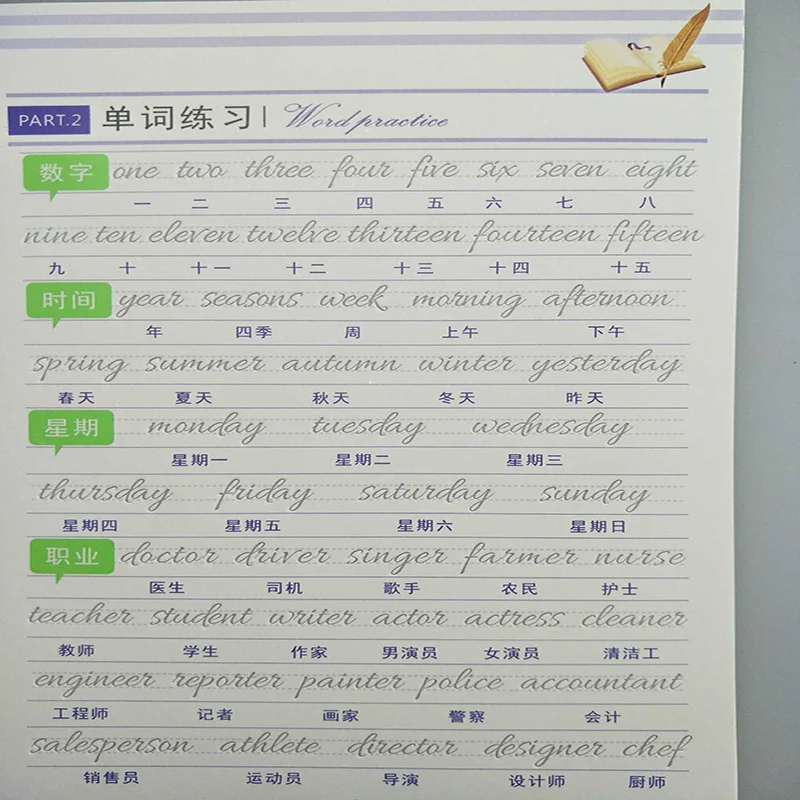 PART.2 单词练习 Word practice
数字 one two three four five six seven eight
一 二 三 四 五 六 七 八
nine ten eleven twelve thirteen fourteen fifteen
九 十 十一 十二 十三 十四 十五
时间 year seasons week morning afternoon
年 四季 周 上午 下午
spring summer autumn winter yesterday
春天 夏天 秋天 冬天 昨天
星期 monday tuesday wednesday
星期一 星期二 星期三
thursday friday saturday sunday
星期四 星期五 星期六 星期日
职业 doctor driver singer farmer nurse
医生 司机 歌手 农民 护士
teacher student writer actor actress cleaner
教师 学生 作家 男演员 女演员 清洁工
engineer reporter painter police accountant
工程师 记者 画家 警察 会计
salesperson athlete director designer chef
销售员 运动员 导演 设计师 厨师